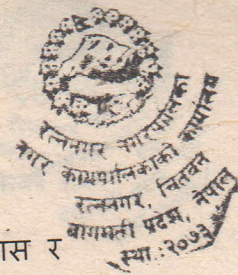 रत्ननगर नगरपालिका
नगर कार्यपालिकाको कार्यालय
रत्ननगर, चितवन
बागमती प्रदेश, नेपाल
स्था. २०७३
ास र